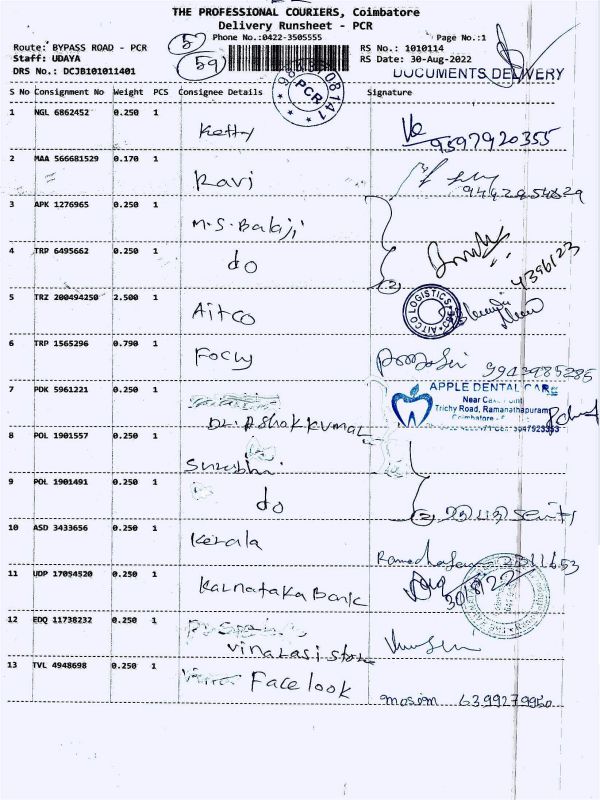 THE PROFESSIONAL COURIERS, Coimbatore
Delivery Runsheet - PCR
Phone No.:0422-3505555
Page No.:1
Route: BYPASS ROAD - PCR
Staff: UDAYA
DRS No.: DCJB101011401
52
59
RS No.: 1010114
RS Date: 30-Aug-2022
PCR
DOCUMENTS DELIVERY
S No Consignment No Weight PCS Consignee Details Signature
1 NGL 6862452 0.250 1 Ketty 9597920355
2 MAA 566681529 0.170 1 Ravi
3 APK 1276965 0.250 1 M.S.Balaji
4 TRP 6495662 0.250 1 do
5 TRZ 200494250 2.500 1 Aitco AITCO LOGISTICS
6 TRP 1565296 0.790 1 Focuy 9943985285
7 PDK 5961221 0.250 1 Dr. Ashok kumar
APPLE DENTAL CARE
Trichy Road, Ramanathapuram
Coimbatore
8 POL 1901557 0.250 1 Surabhi
9 POL 1901491 0.250 1 do
10 ASD 3433656 0.250 1 Kerala
11 UDP 17054520 0.250 1 Karnataka Bank 30/8/22
12 EDQ 11738232 0.250 1 vinayasi store
13 TVL 4948698 0.250 1 Face look masom 6399279950